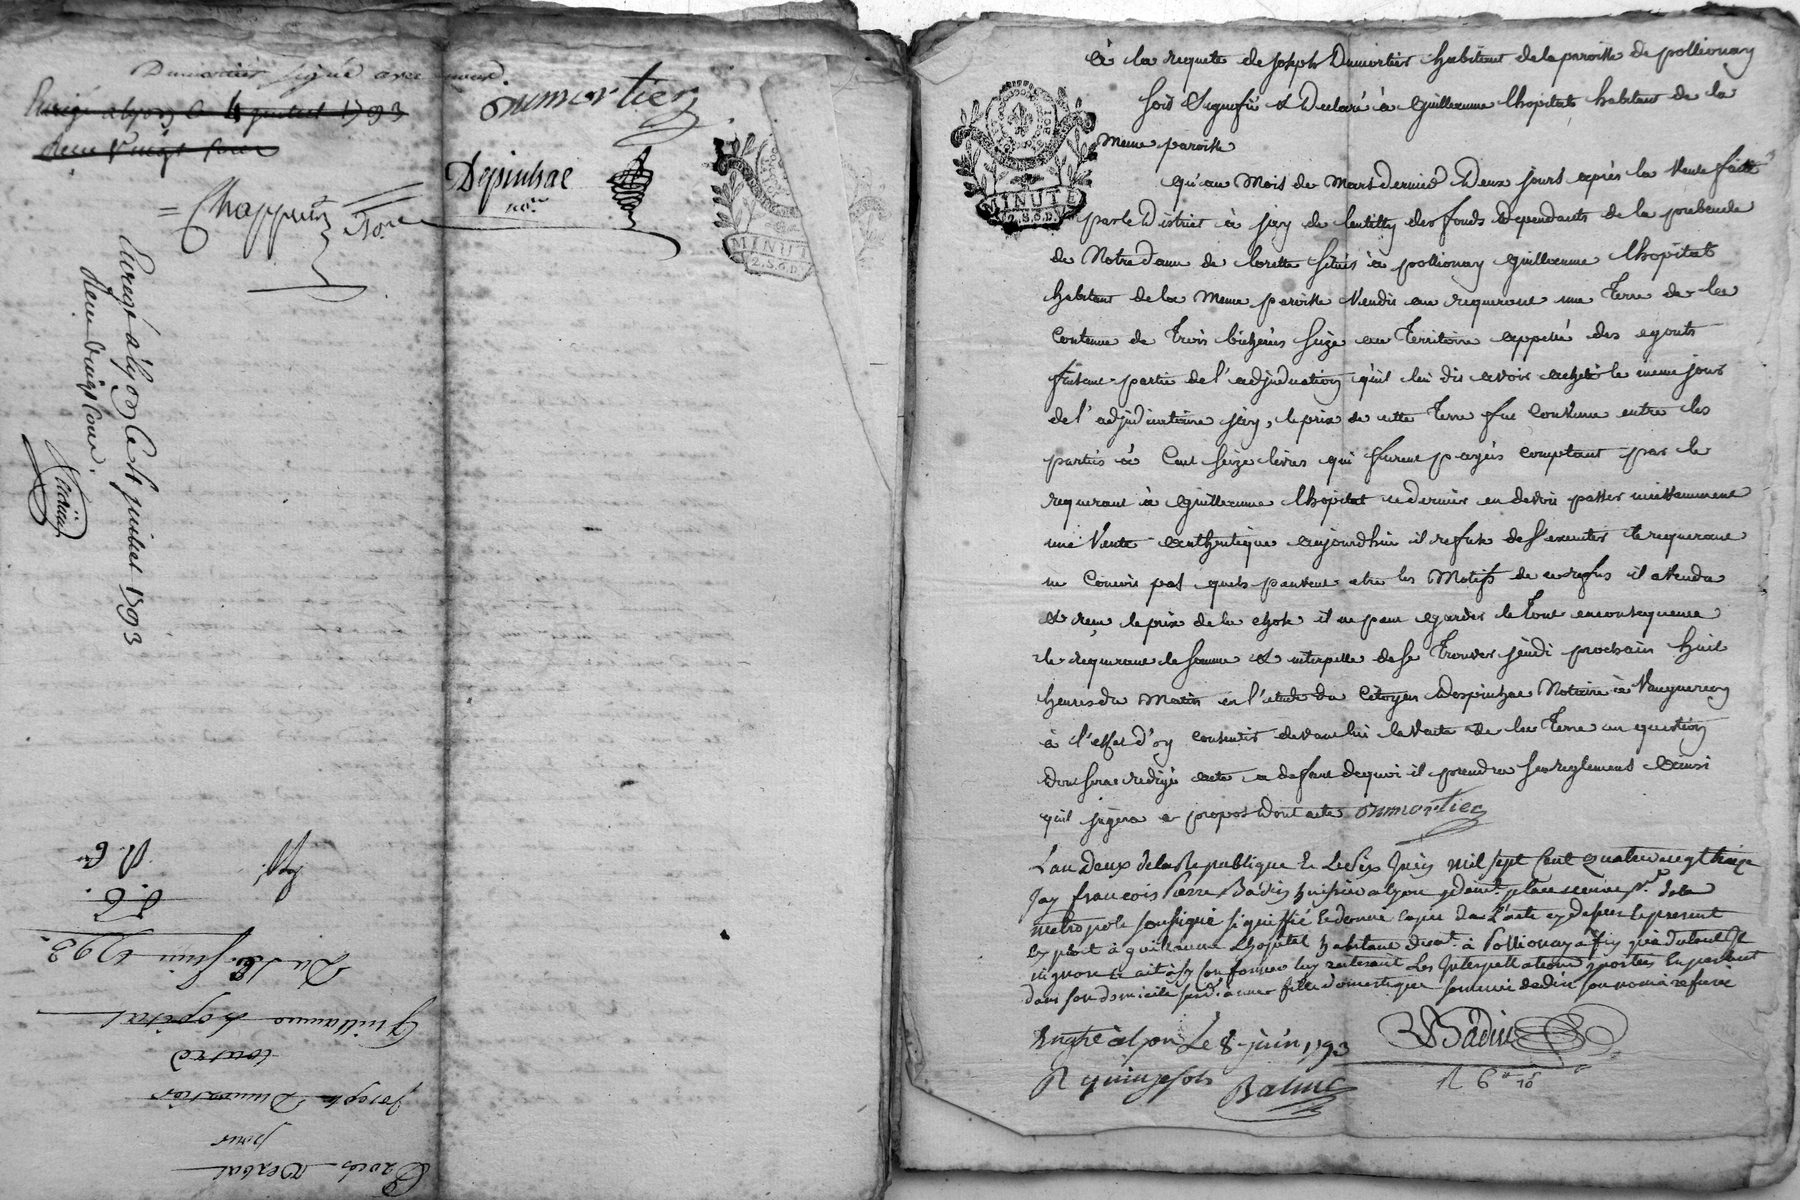 Dumortier signé avec nous.
Enregé a lyon le 4 juillet 1793
Reçu vingt sous
Dumortier
Depinhac
nore
Chappuis
Nore
Enregé à lyon le 4 juillet 1793
Reçu vingt sous.
MINUTE
2.S.6.D.
Du 18. Juin 1793.
Guillaume Lopital
contre
Joseph Dumortier
pour
Procès verbal
à la requete de joseph Dumortier habitant de la paroisse de pollionay
soit signifié & Declaré à Guillaume lhopital habitant de la
meme paroisse
MINUTE
2.S.6.D.
qu'au Mois de Mars dernier Deux jours après la vente faite
par le District à jay de lentilly des fonds dependants de la prebende
de Notre dame de lorette situés à pollionay Guillaume lhopital
habitant de la meme paroisse vendit au requerant une Terre de la
Contenue de Trois bicherées size au Territoire appellé des egouts
faisant partie de l'adjudication qu'il lui dit avoir acheté le meme jour
de l'adjudicataire jay, le prix de cette Terre fut convenu entre les
parties à Cent seize livres qui furent payés comptant par le
requerant à Guillaume lhopital ce dernier en devoit passer incessamment
une Vente authentique aujourdhui il refuse de l'executer le requerant
ne Conçoit pas quels peuvent etre les Motifs de ce refus il a vendu
& reçu le prix de la chose il ne peut garder le Tout en consequence
le requerant le somme & interpelle de se Trouver jeudi prochain huit
heures du Matin en l'etude du Citoyen Depinhac Notaire à Vaugneray
à l'effet d'y consentir devant lui la Vente de la Terre en question
dont sera redigé acte a defaut dequoi il prendra ses reglements ainsi
qu'il jugera a propos Dont acte Dumortier
L'an Deux de la Republique & le six juin mil sept cent quatre vingt treize
Jay francois Pierre Badin huissier a lyon y demt place neuve pse de la
metropole soussigné signiffié & donné copie de l'acte cy dessus & present
exploit à guillaume Lhopital habitant demt à Pollionay affin qu'il
n'ignore & ait à s'y conformer luy reiterant les Interpellations y portées En parlant
dans son domicile à fille domestique sommé de dire son nom à refusé
Badin
Engtré à Lyon Le 8 juin 1793
R quinze sols
Balme